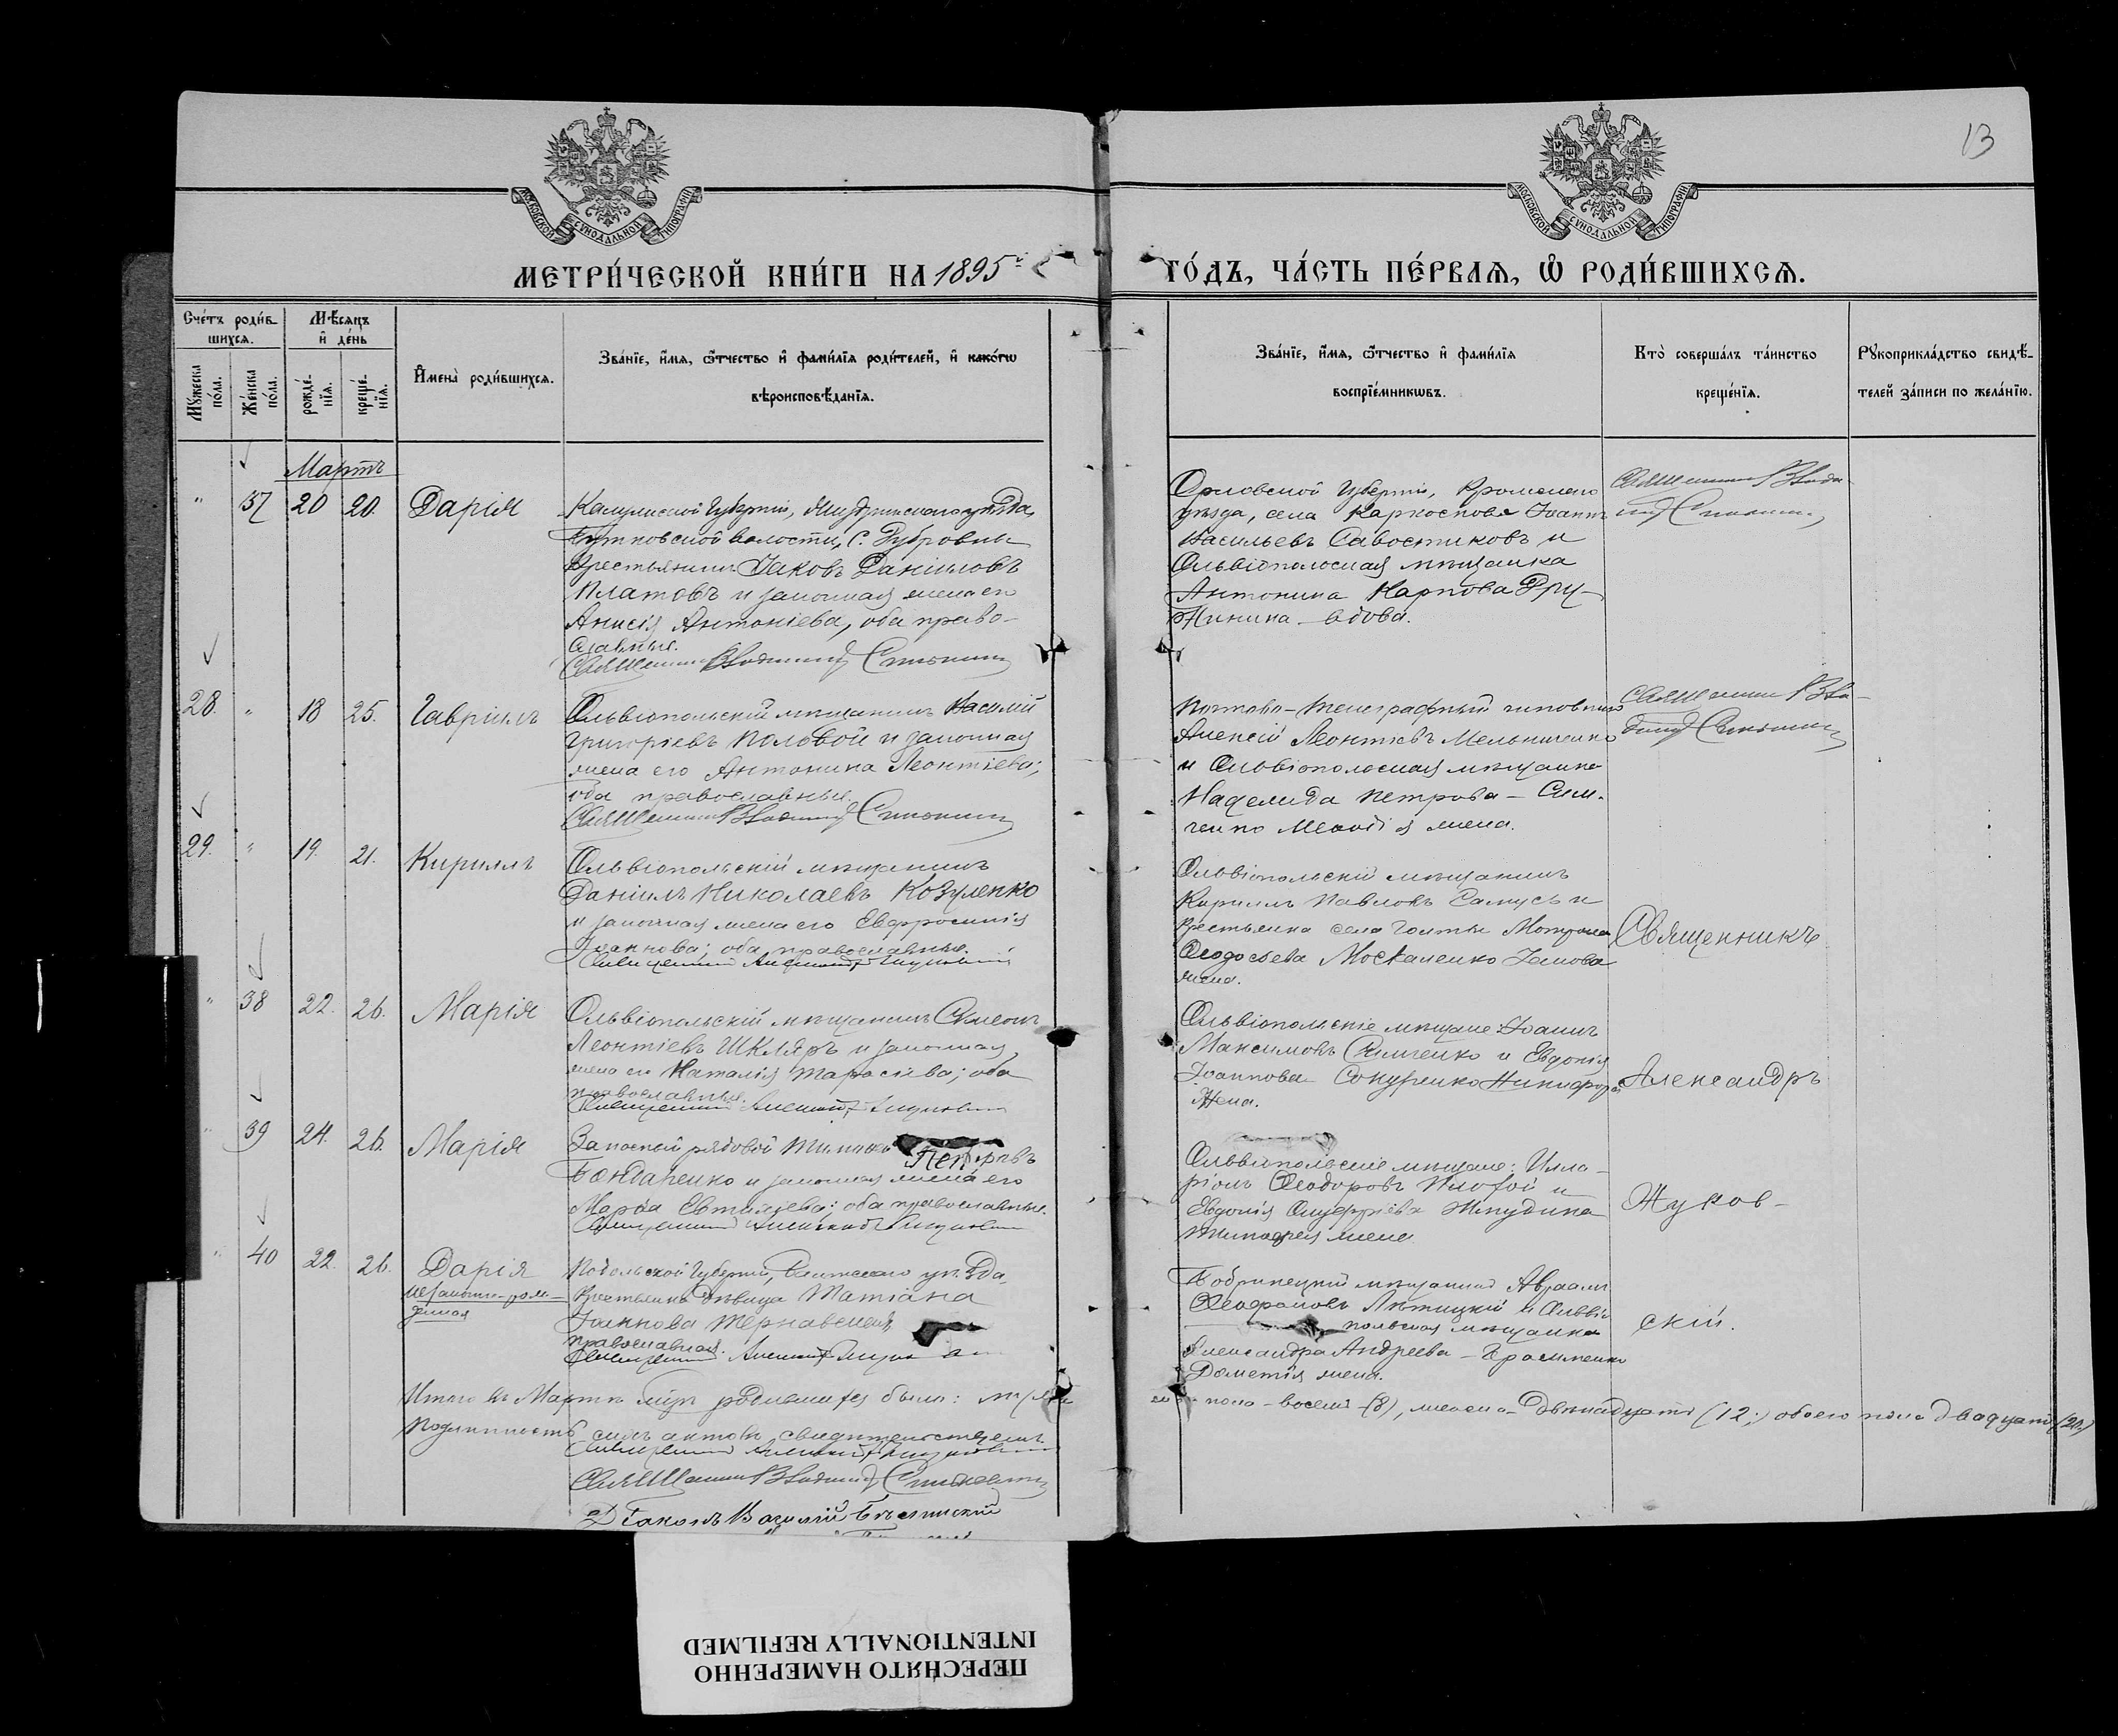 13
МОСКОВСКОЙ СѴНОДАЛЬНОЙ ТИПОГРАФІИ
МОСКОВСКОЙ СѴНОДАЛЬНОЙ ТИПОГРАФІИ
МЕТРИ́ЧЕСКОЙ КНИ́ГИ НА 1895
ГО́ДЪ, ЧА́СТЬ ПЕ́РВАѦ, Ѡ РОДИ́ВШИХСѦ.
Сче́тъ роди́в-
шихсѧ.
Мѣ́сѧцъ
и҆ де́нь
Му́жеска по́ла.
Же́нска по́ла.
рожде́-нїѧ.
креще́-нїѧ.
И҆мена̀ роди́вшихсѧ.
Зва́нїе, и҆́мѧ, ѻ҆́тчество и҆ фами́лїѧ роди́телей, и҆ како́гѡ
вѣроисповѣ́данїѧ.
Зва́нїе, и҆́мѧ, ѻ҆́тчество и҆ фами́лїѧ
воспрїе́мникѡвъ.
Кто̀ соверша́лъ та́инство
креще́нїѧ.
Рꙋкоприкла́дство свидѣ́-
телей за́писи по жела́нїю.
Мартъ
" 37 20 20. Дарія
Калужской Губерніи, уѣзда,
волости, С.
Крестьянинъ Іаковъ Даніиловъ
Платовъ и законная жена его
Анисія Антоніева, оба право-
славные.
Священникъ Владимиръ
Орловской Губерніи, Кромскаго
уѣзда, села Іоаннъ
Васильевъ Савостиковъ и
Ольвіопольская мѣщанка
Антонина Карпова Дру-
жинина - вдова.
Священникъ Влади-
миръ
28. " 18 25. Гавріилъ
Ольвіопольскій мѣщанинъ Василій
Григоріевъ Половой и законная
жена его Антонина Леонтіева;
оба православные.
Священникъ Владимиръ
Почтово-телеграфный чиновникъ
Алексій Леонтіевъ Мельниченко
и Ольвіопольская мѣщанка
Надежда Петрова - Сим-
ченко жена.
Священникъ Вла-
димиръ
29. " 19. 21. Кириллъ
Ольвіопольскій мѣщанинъ
Даніилъ Николаевъ Козуленко
и законная жена его Евфросинія
Іоаннова; оба православные.
Священникъ Александръ Жуковскій
Ольвіопольскій мѣщанинъ
Кириллъ Павловъ Самусь и
крестьянка села Голты Мотрона
Ѳеодосьева Москаленко
жена.
Священникъ
" 38 22. 26. Марія
Ольвіопольскій мѣщанинъ Симеонъ
Леонтіевъ Шкляръ и законная
жена его Наталія Тарасіева; оба
православные.
Священникъ Александръ Жуковскій
Ольвіопольскіе мѣщане: Іоаннъ
Максимовъ Симченко и Евдокія
Іоаннова Никифора
жена.
Александръ
" 39 24. 26. Марія
Запасный рядовой
Петровъ
Бондаренко и законная жена его
Марѳа Евтихіева; оба православные.
Священникъ Александръ Жуковскій
Ольвіопольскіе мѣщане: Илла-
ріонъ Ѳеодоровъ и
Евдокія Онуфріева
Тимоѳея жена
Жуков-
" 40 22. 26. Дарія
незаконно-рож-
денная
Подольской Губерніи, Балтскаго уѣзда,
Крестьянка дѣвица Татіана
Іоаннова
православная.
Священникъ Александръ
Бобринецкій мѣщанинъ Авраамъ
и Ольвіо-
польская мѣщанка
Александра Андреева - Герасименко
Дометія жена.
скій.
Итого въ Мартѣ родившихся было: мужес-
каго пола - восемь (8), женска - двѣнадцать (12;) обоего пола двадцать (20)
Подлинность сихъ актовъ свидѣтельствуемъ
Священникъ Александръ Жуковскій
Священникъ Владимиръ
Діаконъ Василій
ПЕРЕСНЯТО НАМЕРЕННО
INTENTIONALLY REFILMED